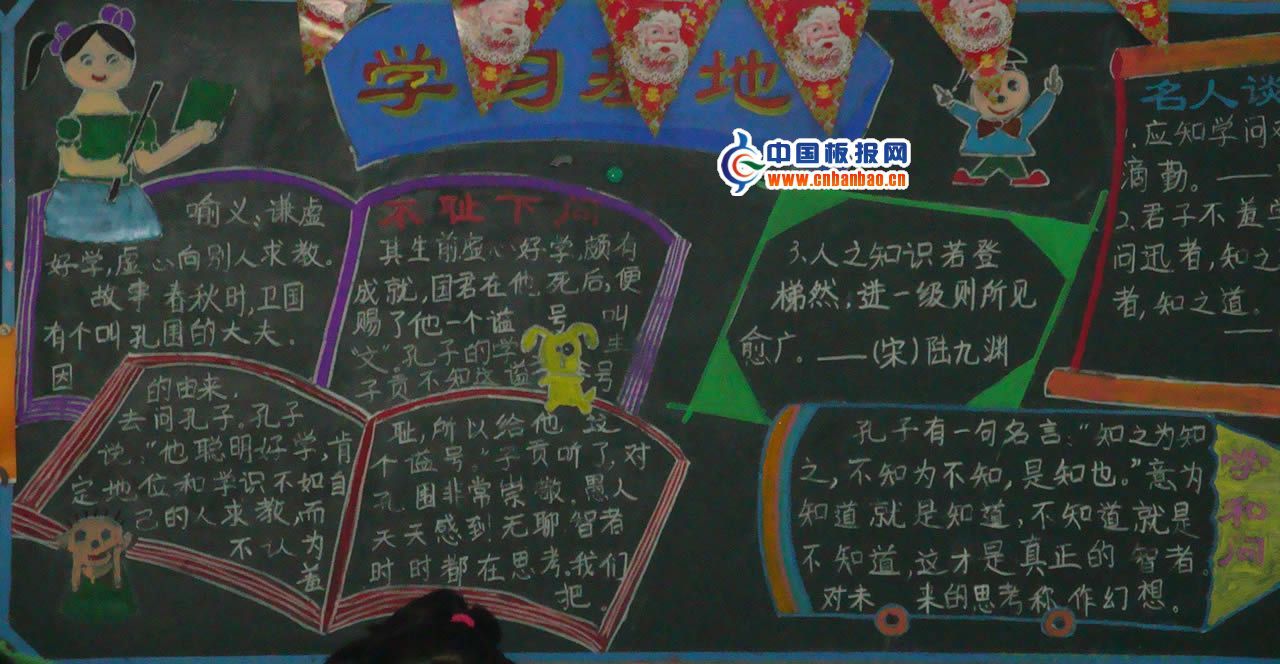 学习基地
中国板报网
www.cnbanbao.cn
喻义:谦虚
好学,虚心向别人求教。
故事 春秋时,卫国
有个叫孔圉的大夫.
因
不耻下问
其生前虚心好学,颇有
成就,国君在他死后,便
赐了他一个谥号 叫
“文”.孔子的学 生
子贡不知这谥 号
的由来.
去问孔子.孔子
说:“他聪明好学,肯
定地位和学识不如自
己的人求教,而
不认为
羞
耻,所以给他 这
个谥号.”子贡听了,对
孔 圉非常崇敬.愚人
天天感到无聊.智者
时时都在思考.我们
把.
3.人之知识若登
梯然,进一级则所见
愈广.——(宋)陆九渊
名人谈
1.应知学问
滴勤。—
2.君子不羞学
问迅者,知之
者,知之道.
孔子有一句名言:“知之为知
之,不知为不知,是知也.”意为
知道,就是知道,不知道,就是
不知道,这才是真正的 智者.
对未 来的思考称 作幻想.
学和问